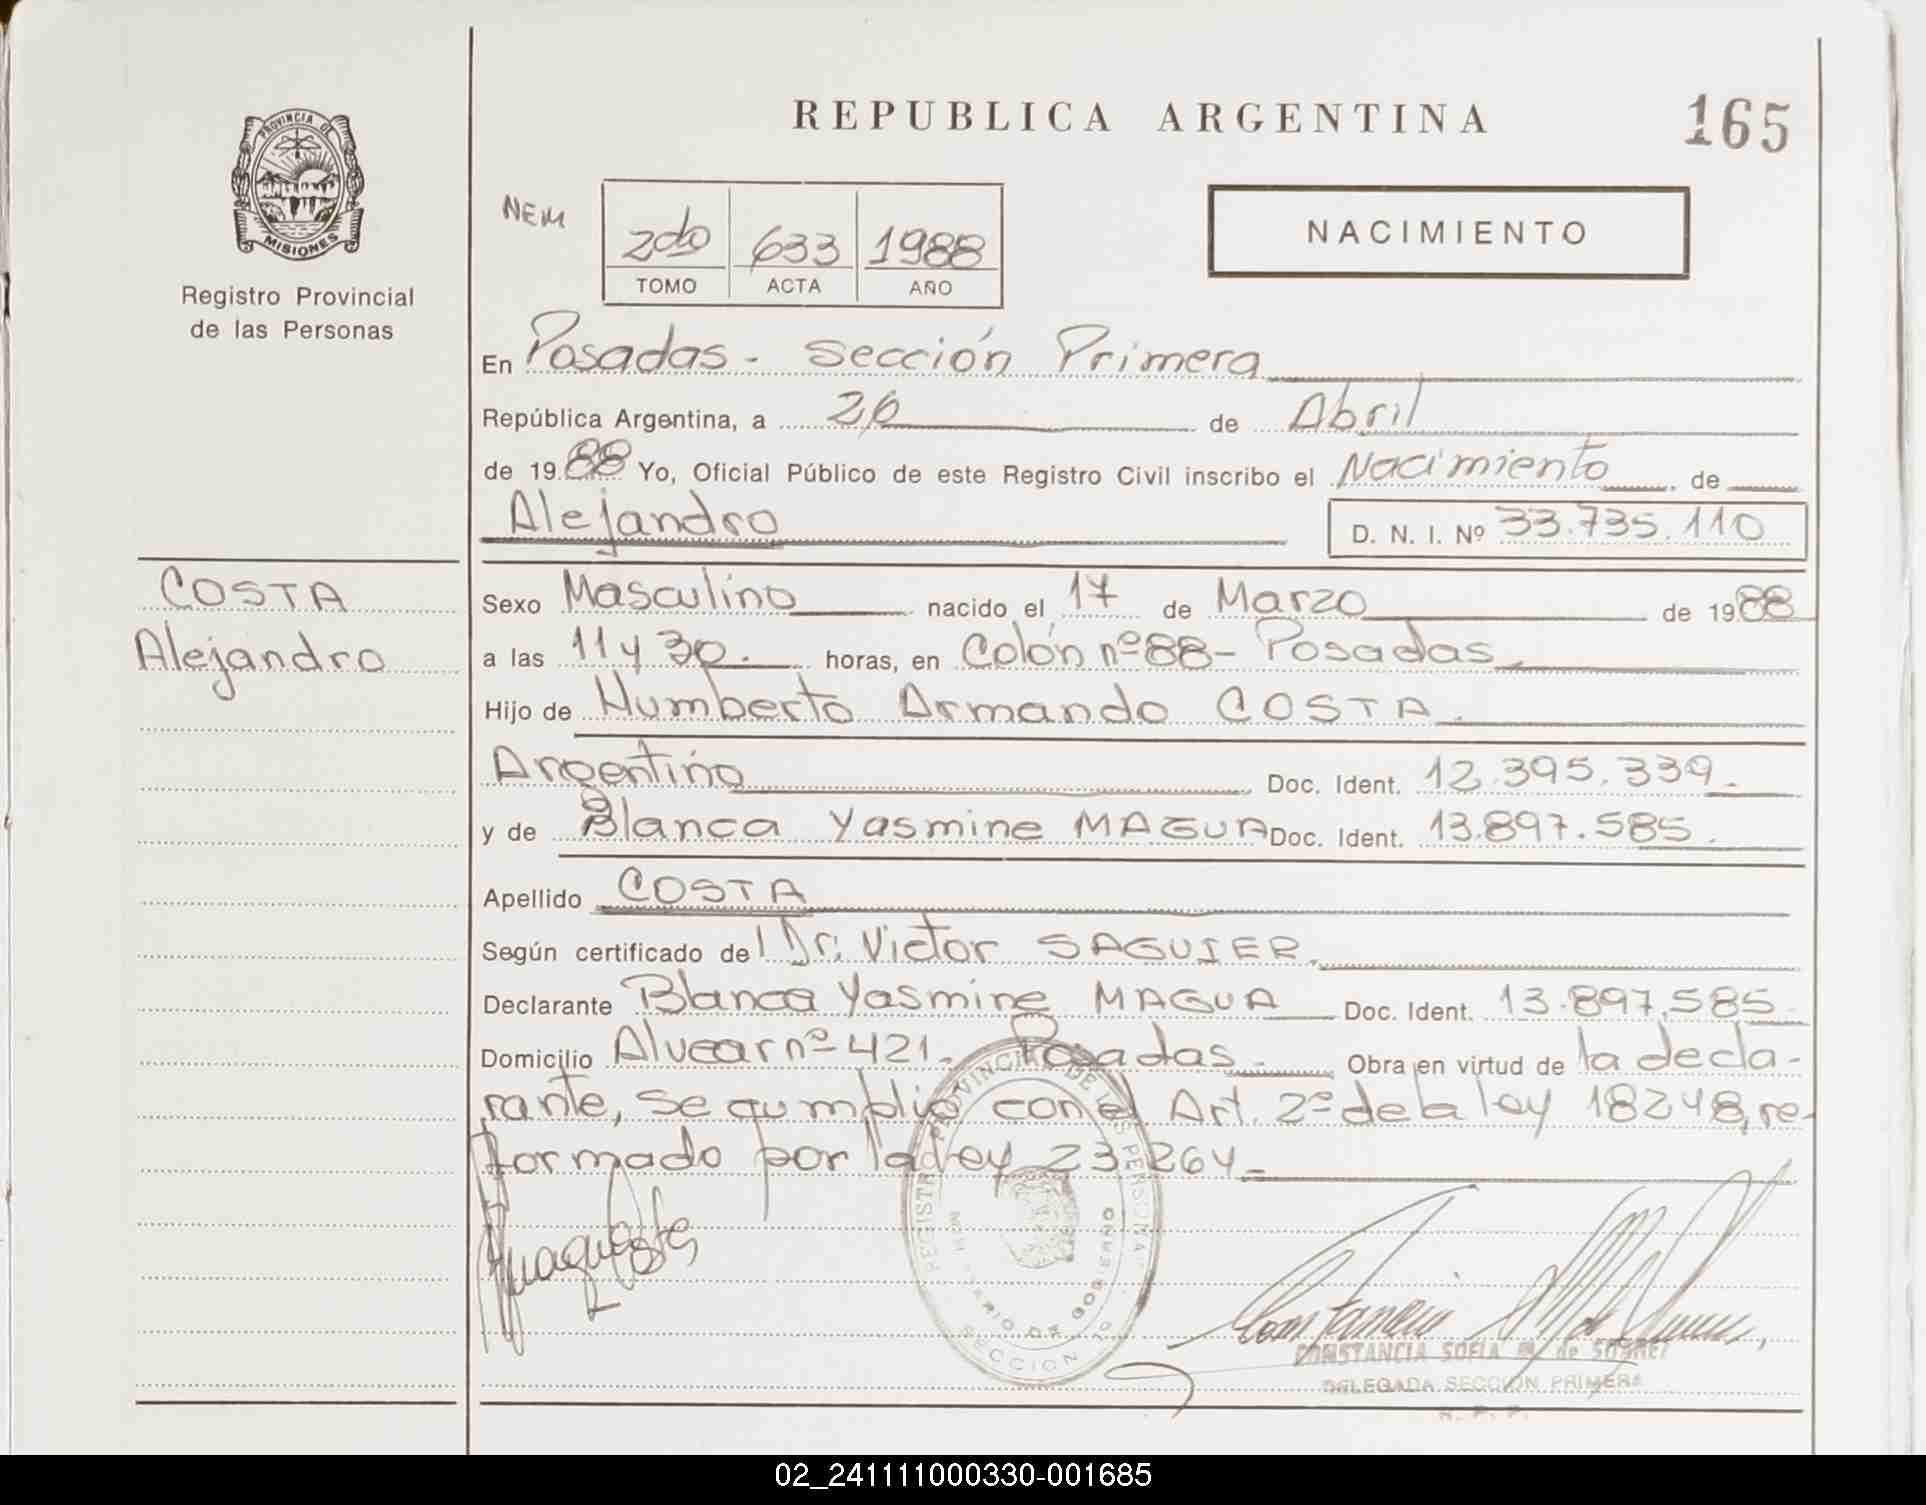 PROVINCIA DE
MISIONES
Registro Provincial
de las Personas
REPUBLICA ARGENTINA
165
NEM
2do 633 1988
TOMO ACTA AÑO
NACIMIENTO
En Posadas - Sección Primera
República Argentina, a 26 de Abril
de 1988 Yo, Oficial Público de este Registro Civil inscribo el Nacimiento, de
Alejandro D. N. I. Nº 33.735.110
COSTA
Alejandro
Sexo Masculino nacido el 17 de Marzo de 1988
a las 11 y 30. horas, en Colón nº 88 - Posadas.
Hijo de Humberto Armando COSTA.
Argentino Doc. Ident. 12.395.339.
y de Blanca Yasmine MAGUA Doc. Ident. 13.897.585.
Apellido COSTA
Según certificado del Dr. Victor SAGUIER.
Declarante Blanca Yasmine MAGUA Doc. Ident. 13.897.585.
Domicilio Alvear nº 421. Posadas. Obra en virtud de la decla-
rante, se cumplió con el Art. 2º de la ley 18248, re-
formado por la ley 23.264.=
REGISTRO PROVINCIAL DE LAS PERSONAS
SECCION 1º
CONSTANCIA SOFIA M. de SUAREZ
DELEGADA SECCION PRIMERA
R. P. P.
02_241111000330-001685